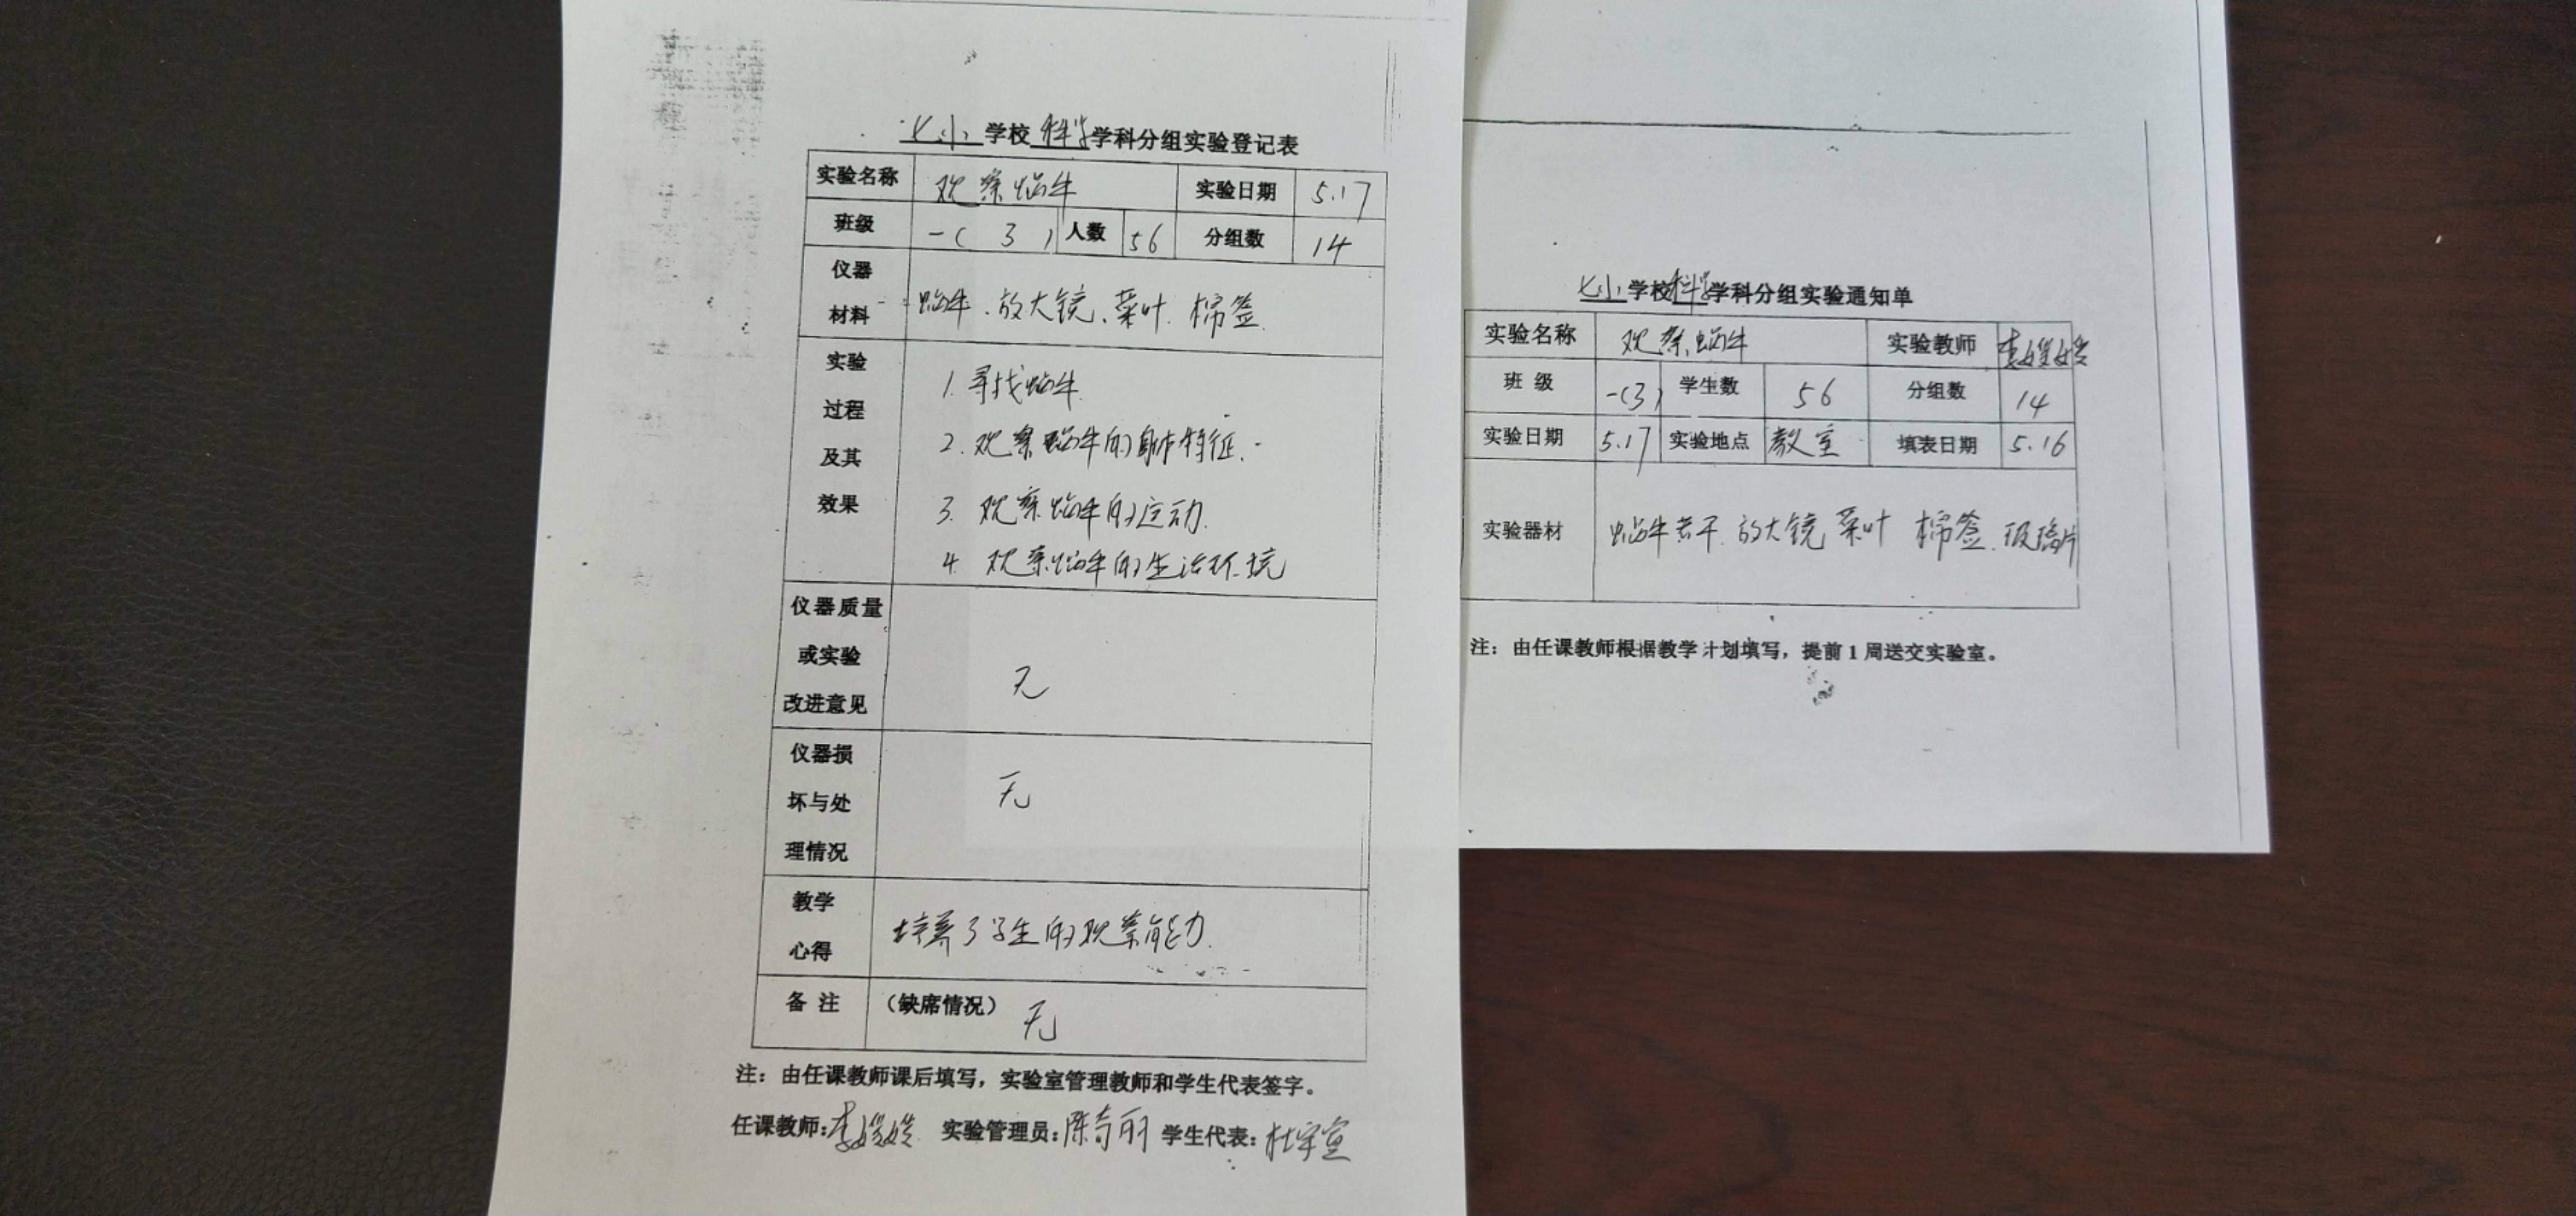 七小学校科学学科分组实验登记表
实验名称 观察蜗牛 实验日期 5.17
班级 一(3) 人数 56 分组数 14
仪器材料 蜗牛、放大镜、菜叶、棉签
实验过程及其效果
1. 寻找蜗牛.
2. 观察蜗牛的身体特征.
3. 观察蜗牛的运动.
4. 观察蜗牛的生活环境
仪器质量或实验改进意见 无
仪器损坏与处理情况 无
教学心得 培养了学生的观察能力.
备注 (缺席情况) 无
注：由任课教师课后填写，实验室管理教师和学生代表签字。
任课教师:李 实验管理员:陈奇丽 学生代表:杜宇宣
七小学校科学学科分组实验通知单
实验名称 观察蜗牛 实验教师 李
班级 一(3) 学生数 56 分组数 14
实验日期 5.17 实验地点 教室 填表日期 5.16
实验器材 蜗牛若干、放大镜 菜叶 棉签、玻璃片
注：由任课教师根据教学计划填写，提前1周送交实验室。